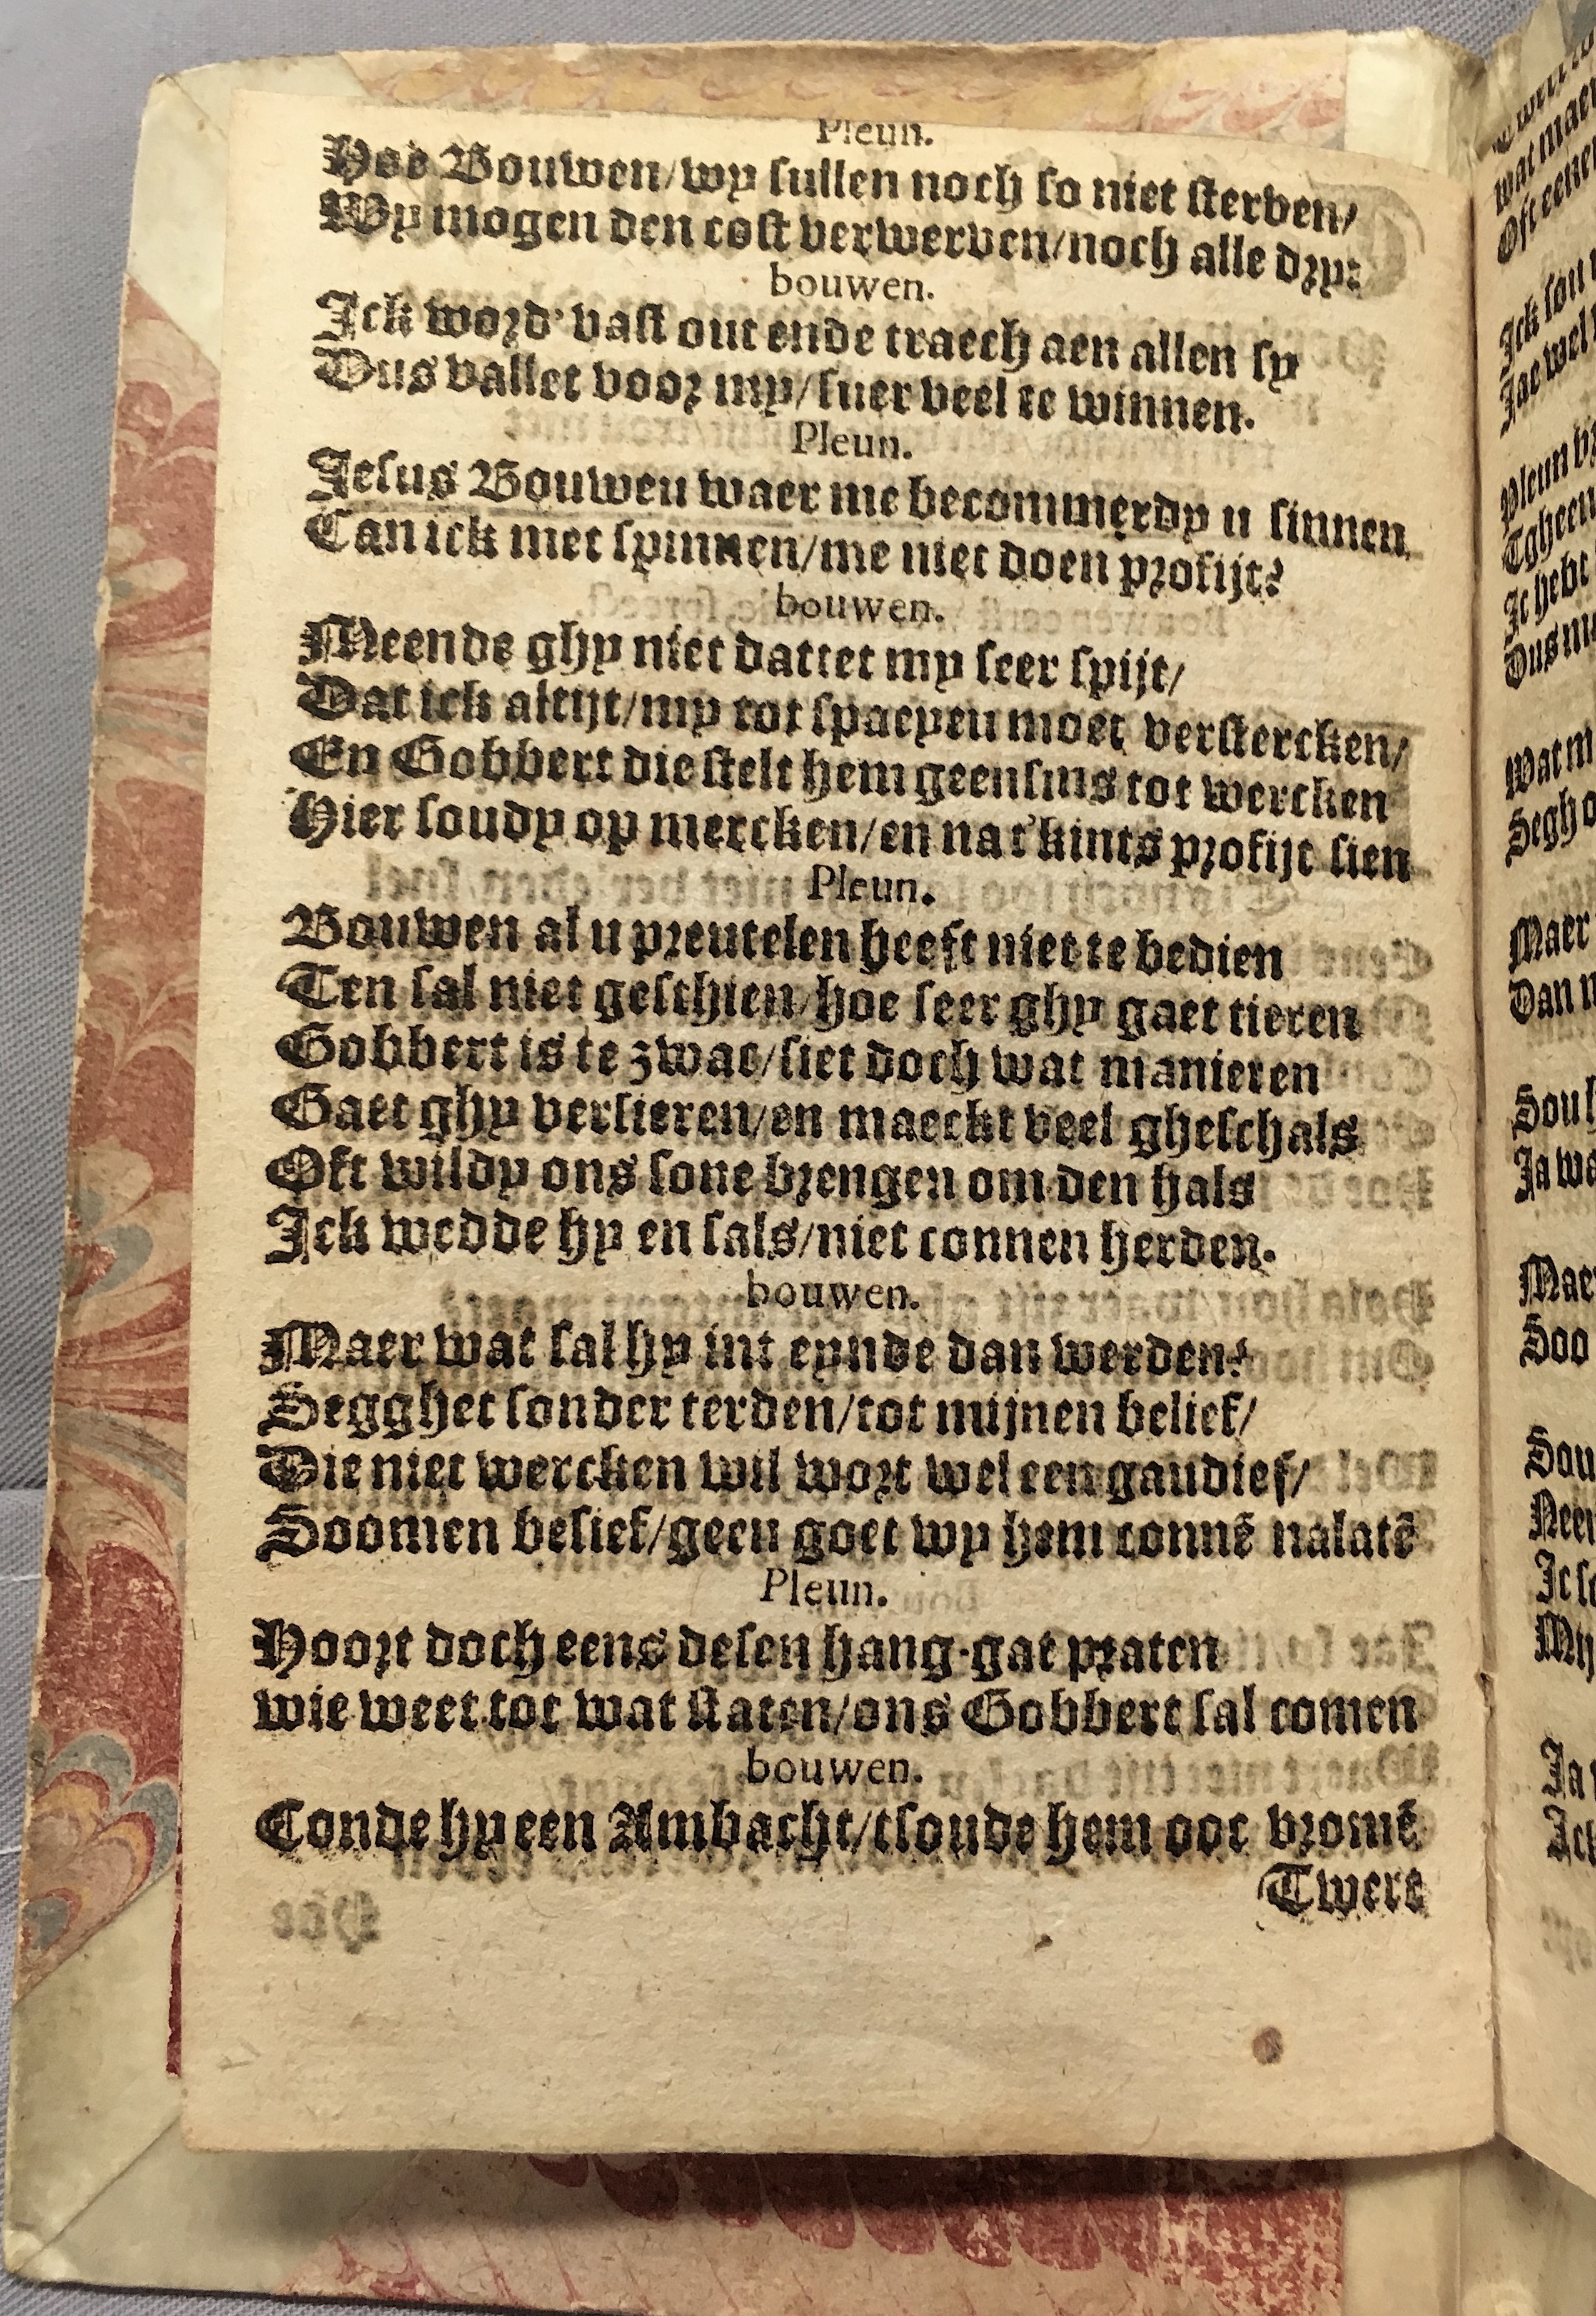 Pleun.
Hoe Bouwen/wy sullen noch so niet sterven/
Wy mogen den cost verwerven/noch alle dry:
bouwen.
Ick word' vast out ende traech aen allen sy
Dus vallet voor my/suer veel te winnen.
Pleun.
Jesus Bouwen waer me becommerdy u sinnen,
Can ick met spinnen/me niet doen profijt?
bouwen.
Meende ghy niet dattet my seer spijt/
Dat ick altijt/my tot spaeyen moet verstercken/
En Gobbert die stelt hem geensins tot wercken
Hier soudy op mercken/en na t'kints profijt sien
Pleun.
Bouwen al u preutelen heeft niet te bedien
Ten sal niet geschien/hoe seer ghy gaet tieren
Gobbert is te zwac/siet doch wat manieren
Gaet ghy versieren/en maeckt veel gheschals
Oft wildy ons sone brengen om den hals
Ick wedde hy en sals/niet connen herden.
bouwen.
Maer wat sal hy int eynde dan werden?
Segghet sonder terden/tot mijnen belief/
Die niet wercken wil wort wel een gaudief/
Soomen besief/geen goet wy hem connē nalatē
Pleun.
Hoort doch eens desen hang-gat praten
wie weet tot wat staten/ons Gobbert sal comen
bouwen.
Conde hy een Ambacht/tsoude hem ooc vromē
Twert
wat maer
Oft eenen
Ick sou
Jae wel
Pleun
Tgheen
Ic hebt
Dus
Wat
Segh
Maer
Dan
Ja wa
Maer
Soo
Neen
Ja
Ick